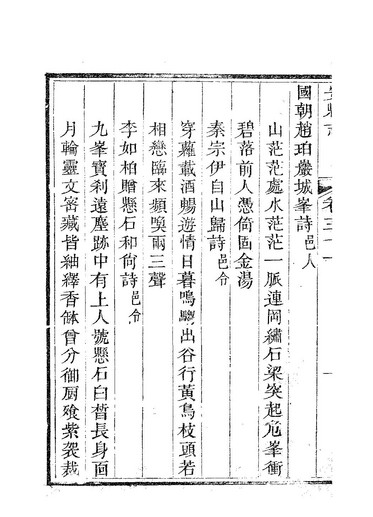 國朝趙珀巖城峯詩邑人
山茫茫處水茫茫一脈連岡繡石梁突起危峯衝
碧落前人憑倚固金湯
秦宗伊自山歸詩邑令
穿蘿載酒暢遊情日暮鳴騶出谷行黃鳥枝頭若
相戀臨來頻喚兩三聲
李如柏贈懸石和尙詩邑令
九峯寶刹遠塵跡中有上人號懸石白晳長身面
月輪靈文宻藏皆紬繹香鉢曾分御厨飱紫袈裁